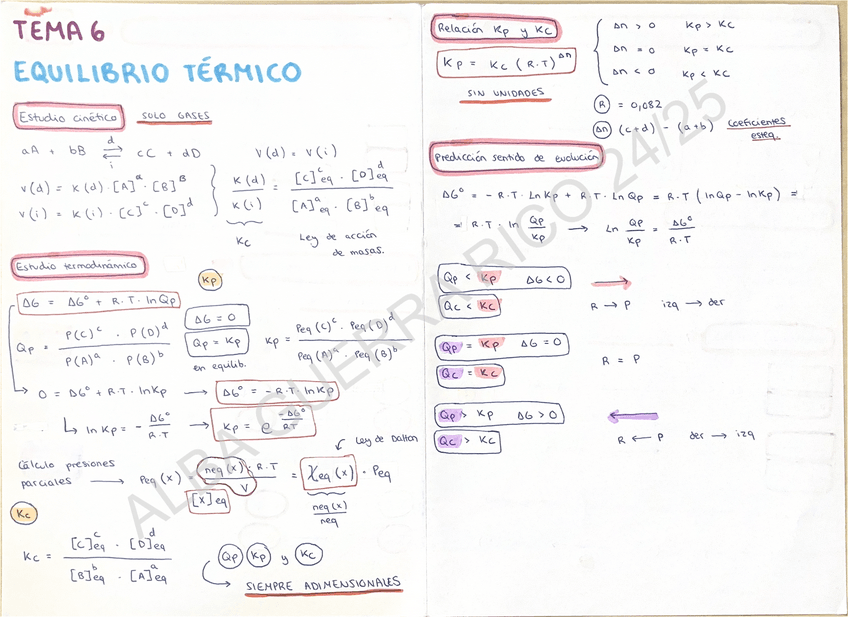 TEMA 6
EQUILIBRIO TÉRMICO
Estudio cinético SOLO GASES
aA + bB ⇌ cC + dD V(d) = V(i)
d
i
V(d) = K(d) · [A]^a · [B]^B
V(i) = K(i) · [C]^c · [D]^d
K(d) / K(i) = [C]^c eq · [D]^d eq / [A]^a eq · [B]^b eq
Kc
Ley de acción
de masas.
Estudio termodinámico
Kp
ΔG = ΔG° + R·T · ln Qp
Qp = P(C)^c · P(D)^d / P(A)^a · P(B)^b
ΔG = 0
Qp = Kp
en equilib.
Kp = Peq(C)^c · Peq(D)^d / Peq(A)^a · Peq(B)^b
→ 0 = ΔG° + R·T · ln Kp → ΔG° = -R·T · ln Kp
↳ ln Kp = - ΔG° / R·T → Kp = e^(-ΔG° / RT)
Ley de Dalton
Cálculo presiones
parciales → Peq(x) = neq(x) · R·T / V = χeq(x) · Peq
[x]eq
neq(x) / neq
Kc
Kc = [C]^c eq · [D]^d eq / [B]^b eq · [A]^a eq
Qp Kp y Kc
→ SIEMPRE ADIMENSIONALES
Relación Kp y Kc
Kp = Kc (R·T)^Δn
SIN UNIDADES
Δn > 0 Kp > Kc
Δn = 0 Kp = Kc
Δn < 0 Kp < Kc
R = 0,082
Δn (c+d) - (a+b) coeficientes
esteq.
Predicción sentido de evolución
ΔG° = - R·T · Ln Kp + R·T · Ln Qp = R·T (ln Qp - ln Kp) =
= R·T · ln Qp / Kp → Ln Qp / Kp = ΔG° / R·T
Qp < Kp ΔG < 0 →
Qc < Kc
R → P izq → der
Qp = Kp ΔG = 0
Qc = Kc
R = P
Qp > Kp ΔG > 0 ←
Qc > Kc
R ← P der → izq
ALBA GUERRA RICO 24/25